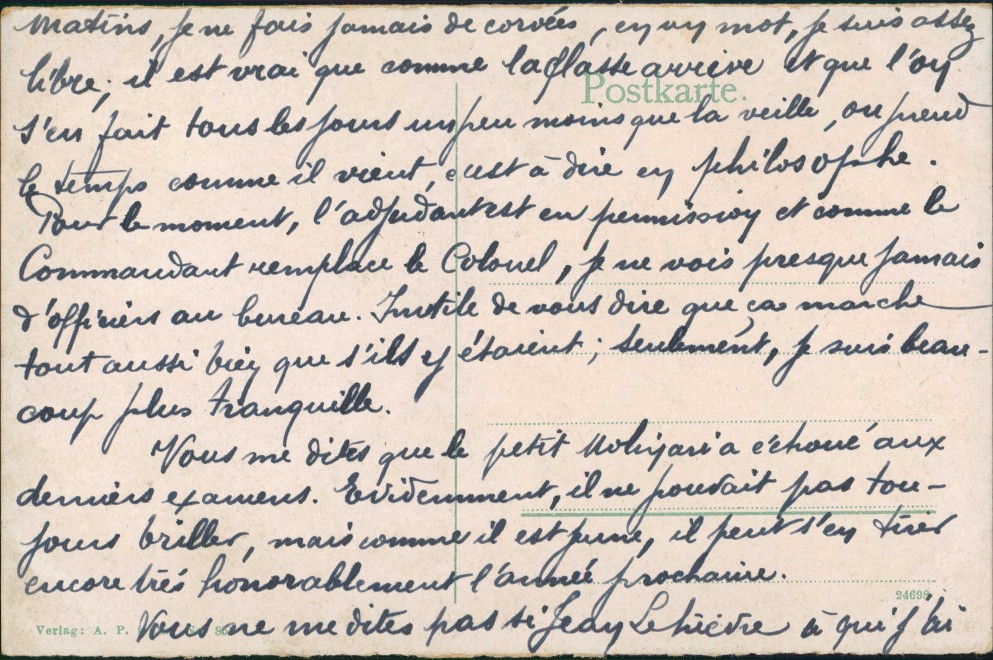 matins, je ne fais jamais de corvées, en un mot, je suis assez
libre; il est vrai que comme la classe arrive et que l'on
Postkarte.
s'en fait tous les jours un peu moins que la veille, on prend
le temps comme il vient, c'est à dire en philosophe.
Pour le moment, l'adjudant est en permission et comme le
Commandant remplace le Colonel, je ne vois presque jamais
d'officiers au bureau. Inutile de vous dire que ça marche
tout aussi bien que s'ils y étaient; seulement, je suis beau-
coup plus tranquille.
Vous me dites que le petit Molinari a échoué aux
derniers examens. Evidemment, il ne pouvait pas tou-
jours briller, mais comme il est jeune, il peut s'en tirer
encore très honorablement l'année prochaine.
24698
Verlag: A. P.
Vous ne me dites pas si Jean Lelièvre à qui j'ai